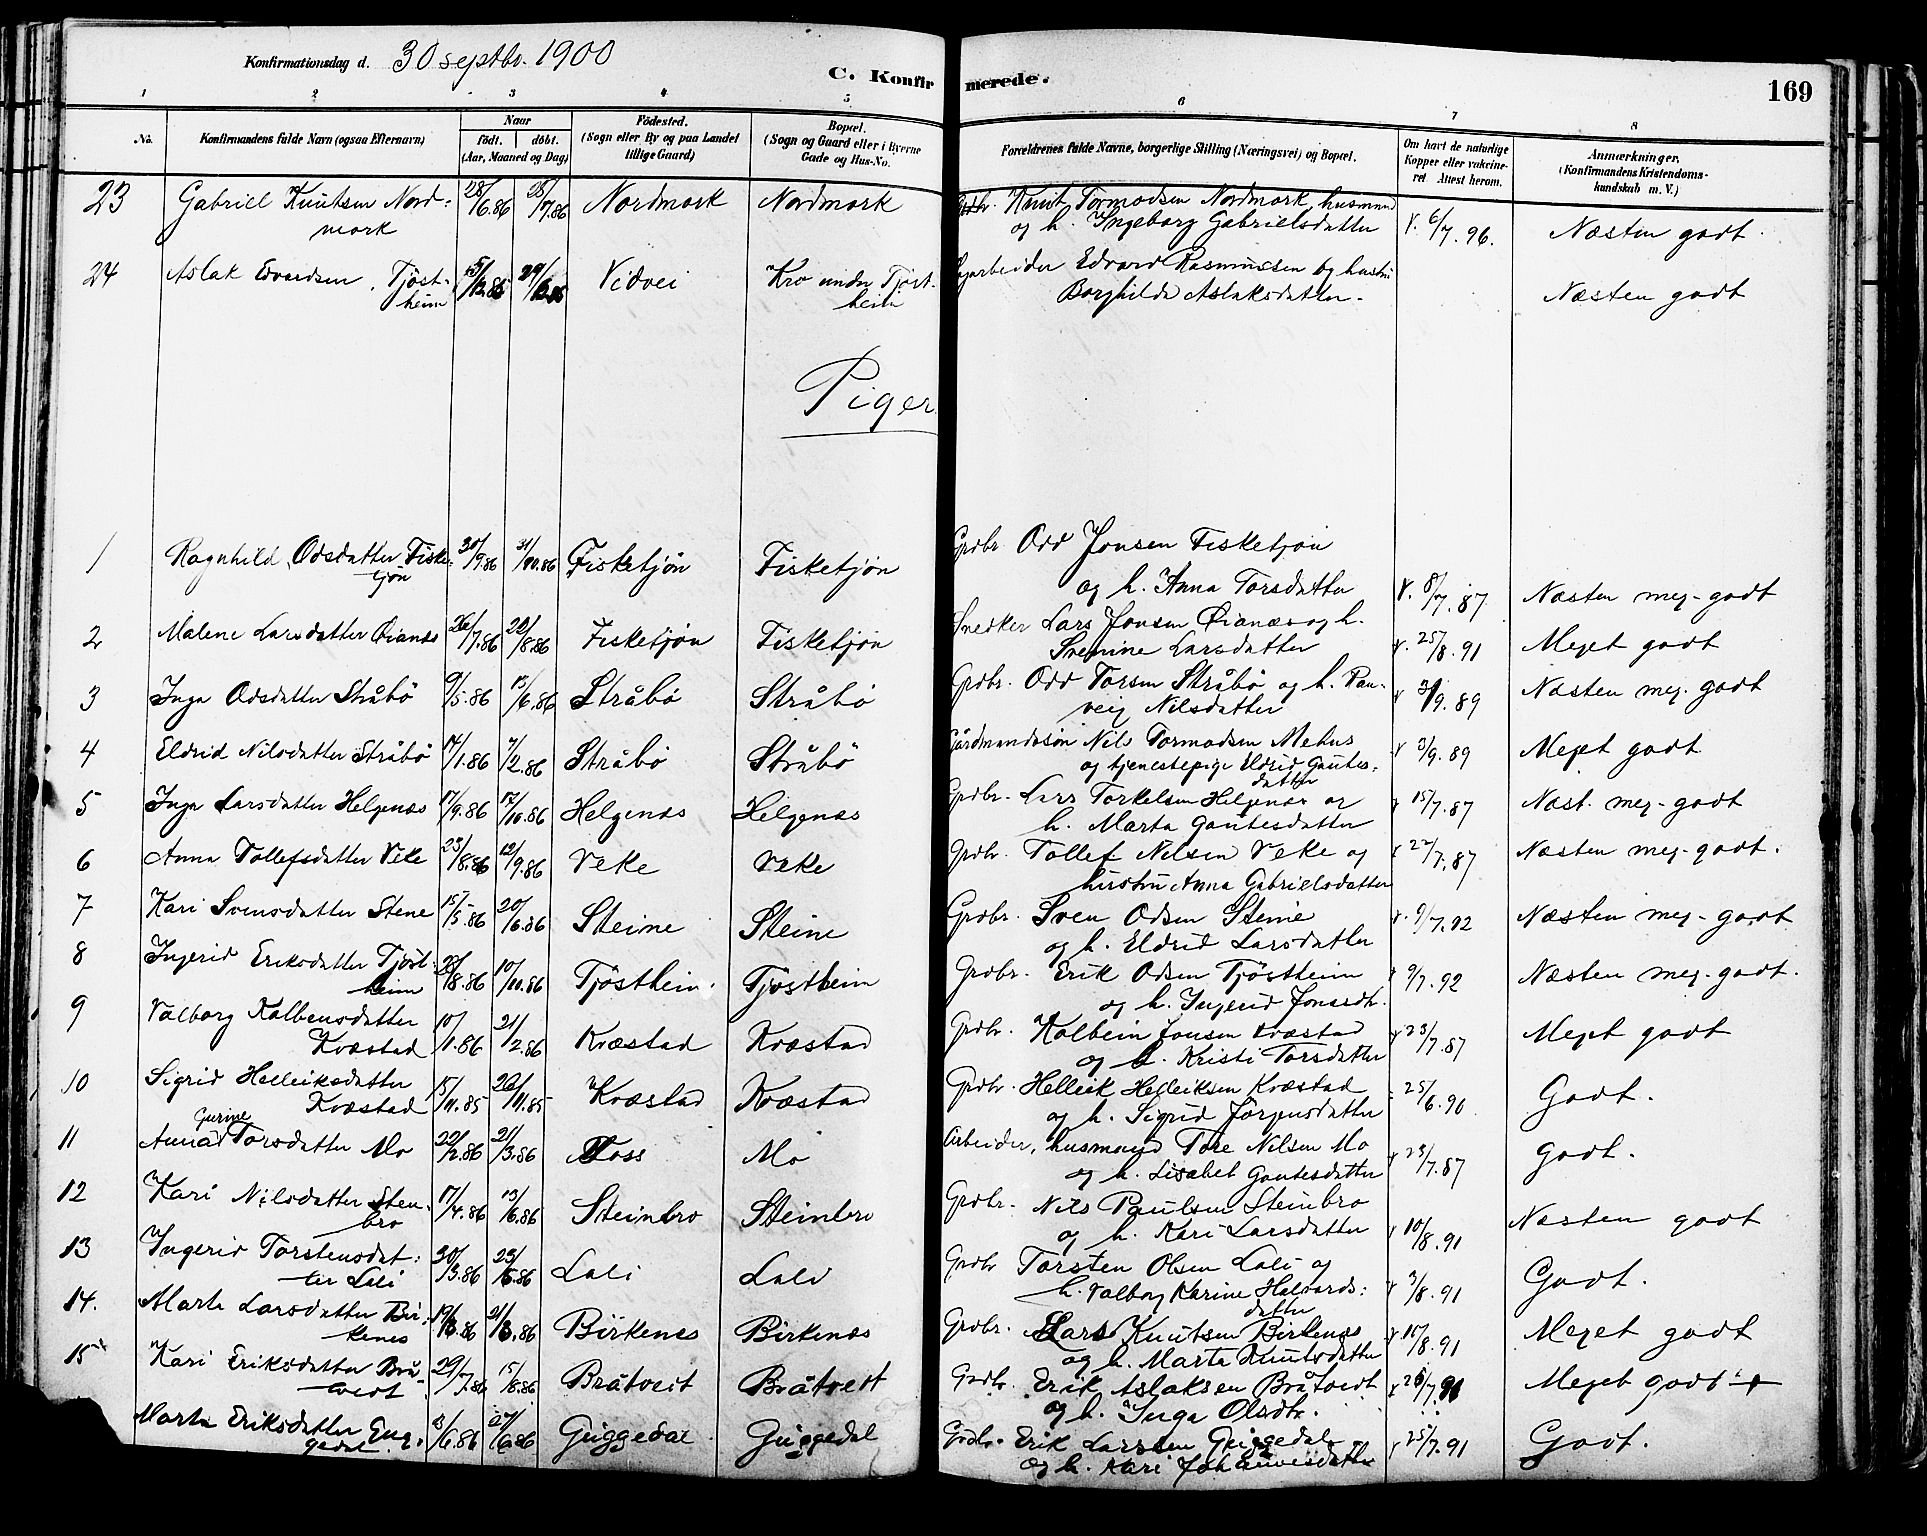 Konfirmationsdag d. 30 septbr. 1900
C. Konfirmerede.
169
1 2 3 4 5 6 7 8
No. Konfirmandens fulde Navn (ogsaa Efternavn) Naar født. døbt. (Aar, Maaned og Dag) Fødested. (Sogn eller By og paa Landet tillige Gaard) Bopæl. (Sogn og Gaard eller i Byerne Gade og Hus-No. Forældrenes fulde Navne, borgerlige Stilling (Næringsvei) og Bopæl. Om havt de naturlige Kopper eller vakcineret Attest herom. Anmærkninger. (Konfirmandens Kristendomskundskab m. V.)
23 Gabriel Knutsen Nord- 28/6.86 /7.86 Nordmork Nordmork Grdbr. Knut Tormodsen Nordmork, husmand
mork og h. Ingeborg Gabrielsdatter V. 6/7. 96. Næsten godt.
24 Aslak Edvardsen Tjöst- Vidvei Kro under Tjöst- Edvard Rasmussen og hustru
heim heim Borghilda Aslaksdatter. Næsten godt
Piger
1 Ragnhild Odsdatter Fiske- 30/9.86 31/10.86 Fisketjön Fisketjön Grdbr Odd Jonsen Fisketjön
tjön og h. Anna Torsdatter V. 8/7. 87 Næsten meg. godt
2 Malene Larsdatter Øianæs 26/7.86 /8.86 Fisketjön Fisketjön Snedker Lars Jonsen Øianæs og h.
Larsdatter v. 25/8. 91 Meget godt
3 Inga Odsdatter Stråbö 9/5.86 /6.86 Stråbö Stråbö Grdbr. Odd Torsen Stråbö og h. Ran-
veig Nilsdatter v /9. 89 Næsten meg. godt
4 Eldrid Nilsdatter Stråbö 14/1.86 7/2.86 Stråbö Stråbö Gårdmandssön Nils Tormodsen Mehus
og tjenestepige Eldrid Gautes-
datter v 3/9. 89 Meget godt
5 Inga Larsdatter Helgenæs 17/9.86 17/10.86 Helgenæs Helgenæs Grdbr. Lars Torkelsen Helgenæs og
h. Marta Gautesdatter v 15/7. 87 Næst. meg. godt
6 Anna Tollefsdatter Veke 23/8.86 /9.86 Veke Veke Grdbr. Tollef Nilsen Veke og
hustru Anna Gabrielsdatter v 22/7. 87 Næsten meg. godt.
7 Kari Svensdatter Stene 15/5.86 20/6.86 Steine Steine Grdbr. Sven Odsen Steine
og h. Eldrid Larsdatter v. 9/7. 92 Næsten meg. godt
8 Ingerid Eriksdatter Tjöst- /8.86 10/10.86 Tjöstheim. Tjöstheim Grdbr. Erik Odsen Tjöstheim
heim og h. Ingerid Jonasdtr. 9/7. 92 Næsten meg. godt.
9 Valborg Kolbensdatter
Kvæstad 10/1.86 21/2.86 Kvæstad Kvæstad Grdbr. Kolbein Jonsen Kvæstad
og h. Kristi Torsdatter v 23/7. 87 Meget godt
10 Sigrid Helleiksdatter
Kvæstad 15/11.85 26/11.85 Kvæstad Kvæstad Grdbr. Helleik Helleiksen Kvæstad
og h. Sigrid Jörgensdatter 25/6. 90 Godt.
11 Anna Gurine Torsdatter Mo 22/2.86 21/3.86 Moss Mo Arbeider, husmand Tore Nilsen Mo
og h. Lisabet Gautesdatter v 23/7. 87 Godt.
12 Kari Nilsdatter Sten- 17/4.86 13/6.86 Steinbro Steinbro Grdbr. Nils Paulsen Steinbro
bro og h. Kari Larsdatter v 10/8. 91 Næsten godt
13 Ingerid Torstensdat- 20/3.86 23/5.86 Lali Lali Grdbr Torsten Olsen Lali og
ter Lali h. Valborg Karine Halvards-
datter v 3/8. 91 Godt.
14. Marta Larsdatter Bir- 19/3.86 21/3.86 Birkenes Birkenæs Grdbr. Lars Knutsen Birkenes
kenes og h. Marta Knutsdatter v 10/8. 91 Meget godt
15 Kari Eriksdatter Brå- 29/7.86 15/8.86 Bråtveit Bråtveit Grdbr. Erik Aslaksen Bråtveit
tveit og h. Inga Olsdtr. v /7. 91 Meget godt +
Marta Eriksdatter Gug- /6.86 27/6.86 Guggedal Guggedal Grdbr. Erik Larsen Guggedal
gedal og h. Kari Johannesdatter v 25/7. 91 Godt.